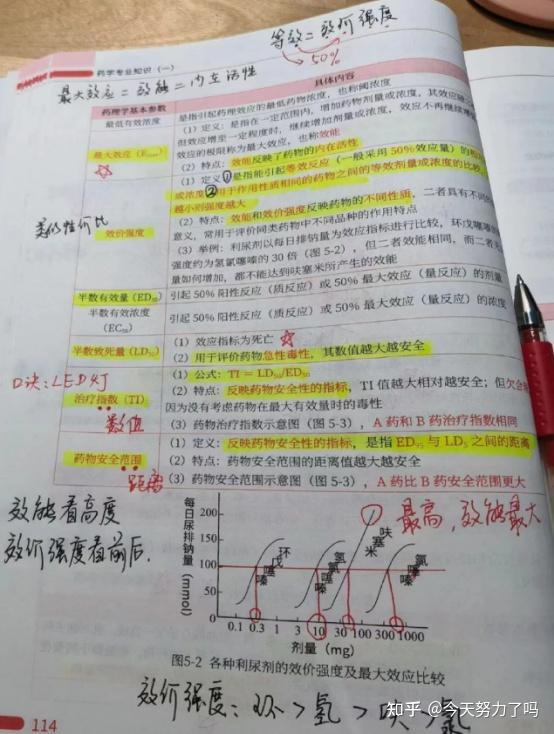 等效=效价强度
50%
药学专业知识（一）
最大效应=效能=内在活性
药理学基本参数
具体内容
最低有效浓度
是指引起药理效应的最低药物浓度，也称阈浓度
最大效应（Emax）
（1）定义：是指在一定范围内，增加药物剂量或浓度，其效应随
但效应增至一定程度时，继续增加剂量或浓度，效应不再继续增
效应的极限称为最大效应，也称效能
（2）特点：效能反映了药物的内在活性
类似性价比
效价强度
（1）定义①是指能引起等效反应（一般采用50%效应量）的
或浓度②用于作用性质相同的药物之间的等效剂量或浓度的比较
越小则强度越大
（2）特点：效能和效价强度反映药物的不同性质，二者具有不同的
意义，常用于评价同类药物中不同品种的作用特点
（3）举例：利尿剂以每日排钠量为效应指标进行比较，环戊噻嗪的
强度约为氢氯噻嗪的30倍（图5-2），但二者效能相同，而二者无
量如何增加，都不能达到呋塞米所产生的效能
半数有效量（ED50）
引起50%阳性反应（质反应）或50%最大效应（量反应）的剂量
半数有效浓度
（EC50）
引起50%阳性反应（质反应）或50%最大效应（量反应）的浓度
半数致死量（LD50）
（1）效应指标为死亡
（2）用于评价药物急性毒性，其数值越大越安全
口诀：LED灯
治疗指数（TI）
数值
（1）公式：TI=LD50/ED50
（2）特点：反映药物安全性的指标，TI值越大相对越安全；但欠合
因为没有考虑药物在最大有效量时的毒性
（3）药物治疗指数示意图（图5-3），A药和B药治疗指数相同
药物安全范围
距离
（1）定义：反映药物安全性的指标，是指ED95与LD5之间的距离
（2）特点：药物安全范围的距离值越大越安全
（3）药物安全范围示意图（图5-3），A药比B药安全范围更大
效能看高度
效价强度看前后.
最高，效能最大
每日尿排钠量（mmol）
200
150
100
50
0
环戊噻嗪
氢氯噻嗪
呋塞米
氯噻嗪
0.1 0.3 1 3 10 30 100 300 1000
剂量（mg）
图5-2 各种利尿剂的效价强度及最大效应比较
效价强度：环>氢>呋>氯
114
知乎 @今天努力了吗